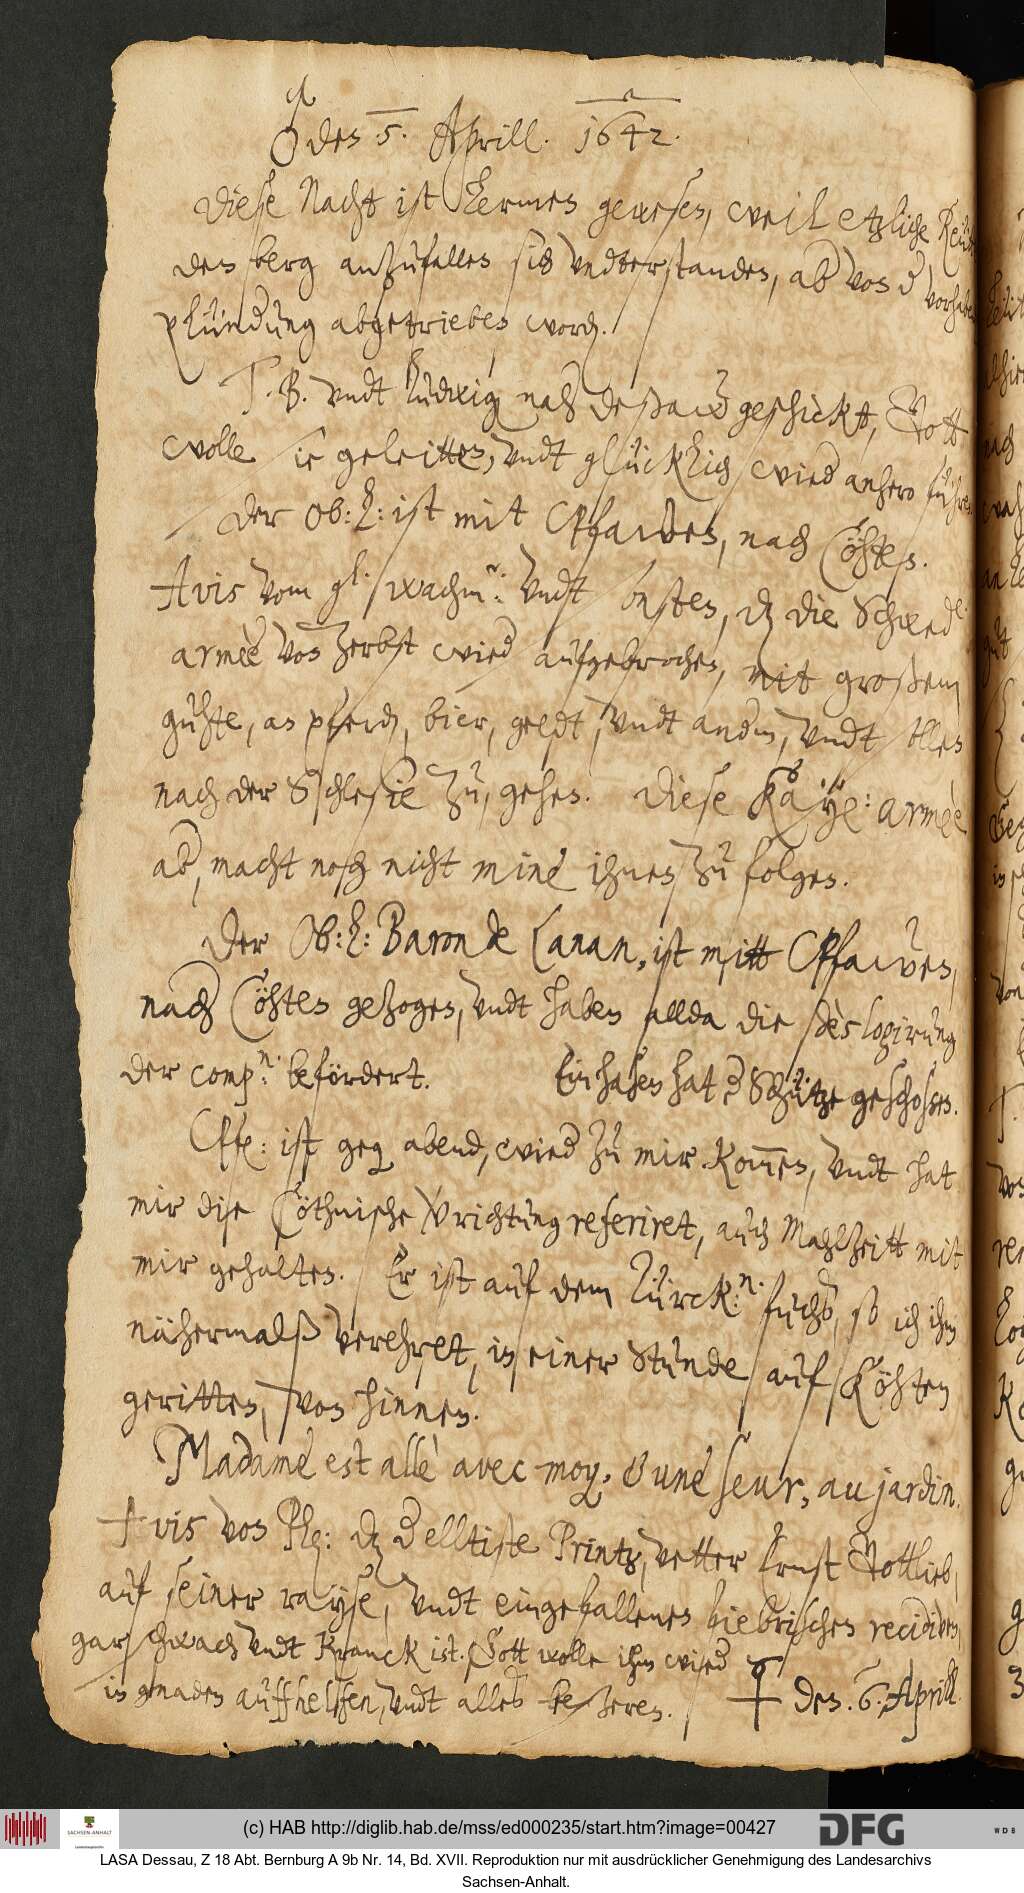 ♂ den 5. Aprill. 1642.
Diese Nacht ist Lermen gewesen, weil etzliche Reüt
den berg anzufallen sich vndterstanden, ab von d vorhaben
plünderung abgetrieben word.
T. B. vndt Ludwig nach Deßaw geschickt, Gott
wolle sie geleitten, vndt glücklich wied anhero führen
Der Ob: L: ist mit Pfawen, nach Cöhten.
Avis vom vndt daß die Schwed:
armèè von Zerbst wied aufgebrochen, mit großem
guhte, an pferd, bier, geldt, vndt andm, vndt alles
nach der Schlesie zu, gehen. Diese Kayße: armèè
ab, macht noch nicht mine ihnen zu folgen.
Der Ob: L: Baron de Lanan, ist mitt Pfawen,
nach Cöhten gezogen, vndt haben allda die deslogirung
der comp:n befördert. Ein hasen hat d Schütze geschoßen.
Pf: ist geg abend, wied zu mir kommen, vndt hat
mir dise Cöthnische Vrichtung referiret, auch Mahlzeitt mit
mir gehalten. Er ist auf dem Türck:n fuchß, so ich ihm
nähermalß verehret, in einer Stunde auf Köhten
geritten, von hinnen.
Madame est allè avec moy, & une seur, au jardin.
Avis von Plö: daß d elltiste Printz, vetter Ernst Gottlieb,
auf seiner rayse, vndt eingefallenen fiebrischen recidiven,
gar schwach vndt kranck ist. Gott wolle ihm wied
in gnaden auffhelffen, vndt alles bescheren. den 6. Aprill.
(c) HAB http://diglib.hab.de/mss/ed000235/start.htm?image=00427
SACHSEN-ANHALT
DFG
WDB
LASA Dessau, Z 18 Abt. Bernburg A 9b Nr. 14, Bd. XVII. Reproduktion nur mit ausdrücklicher Genehmigung des Landesarchivs
Sachsen-Anhalt.